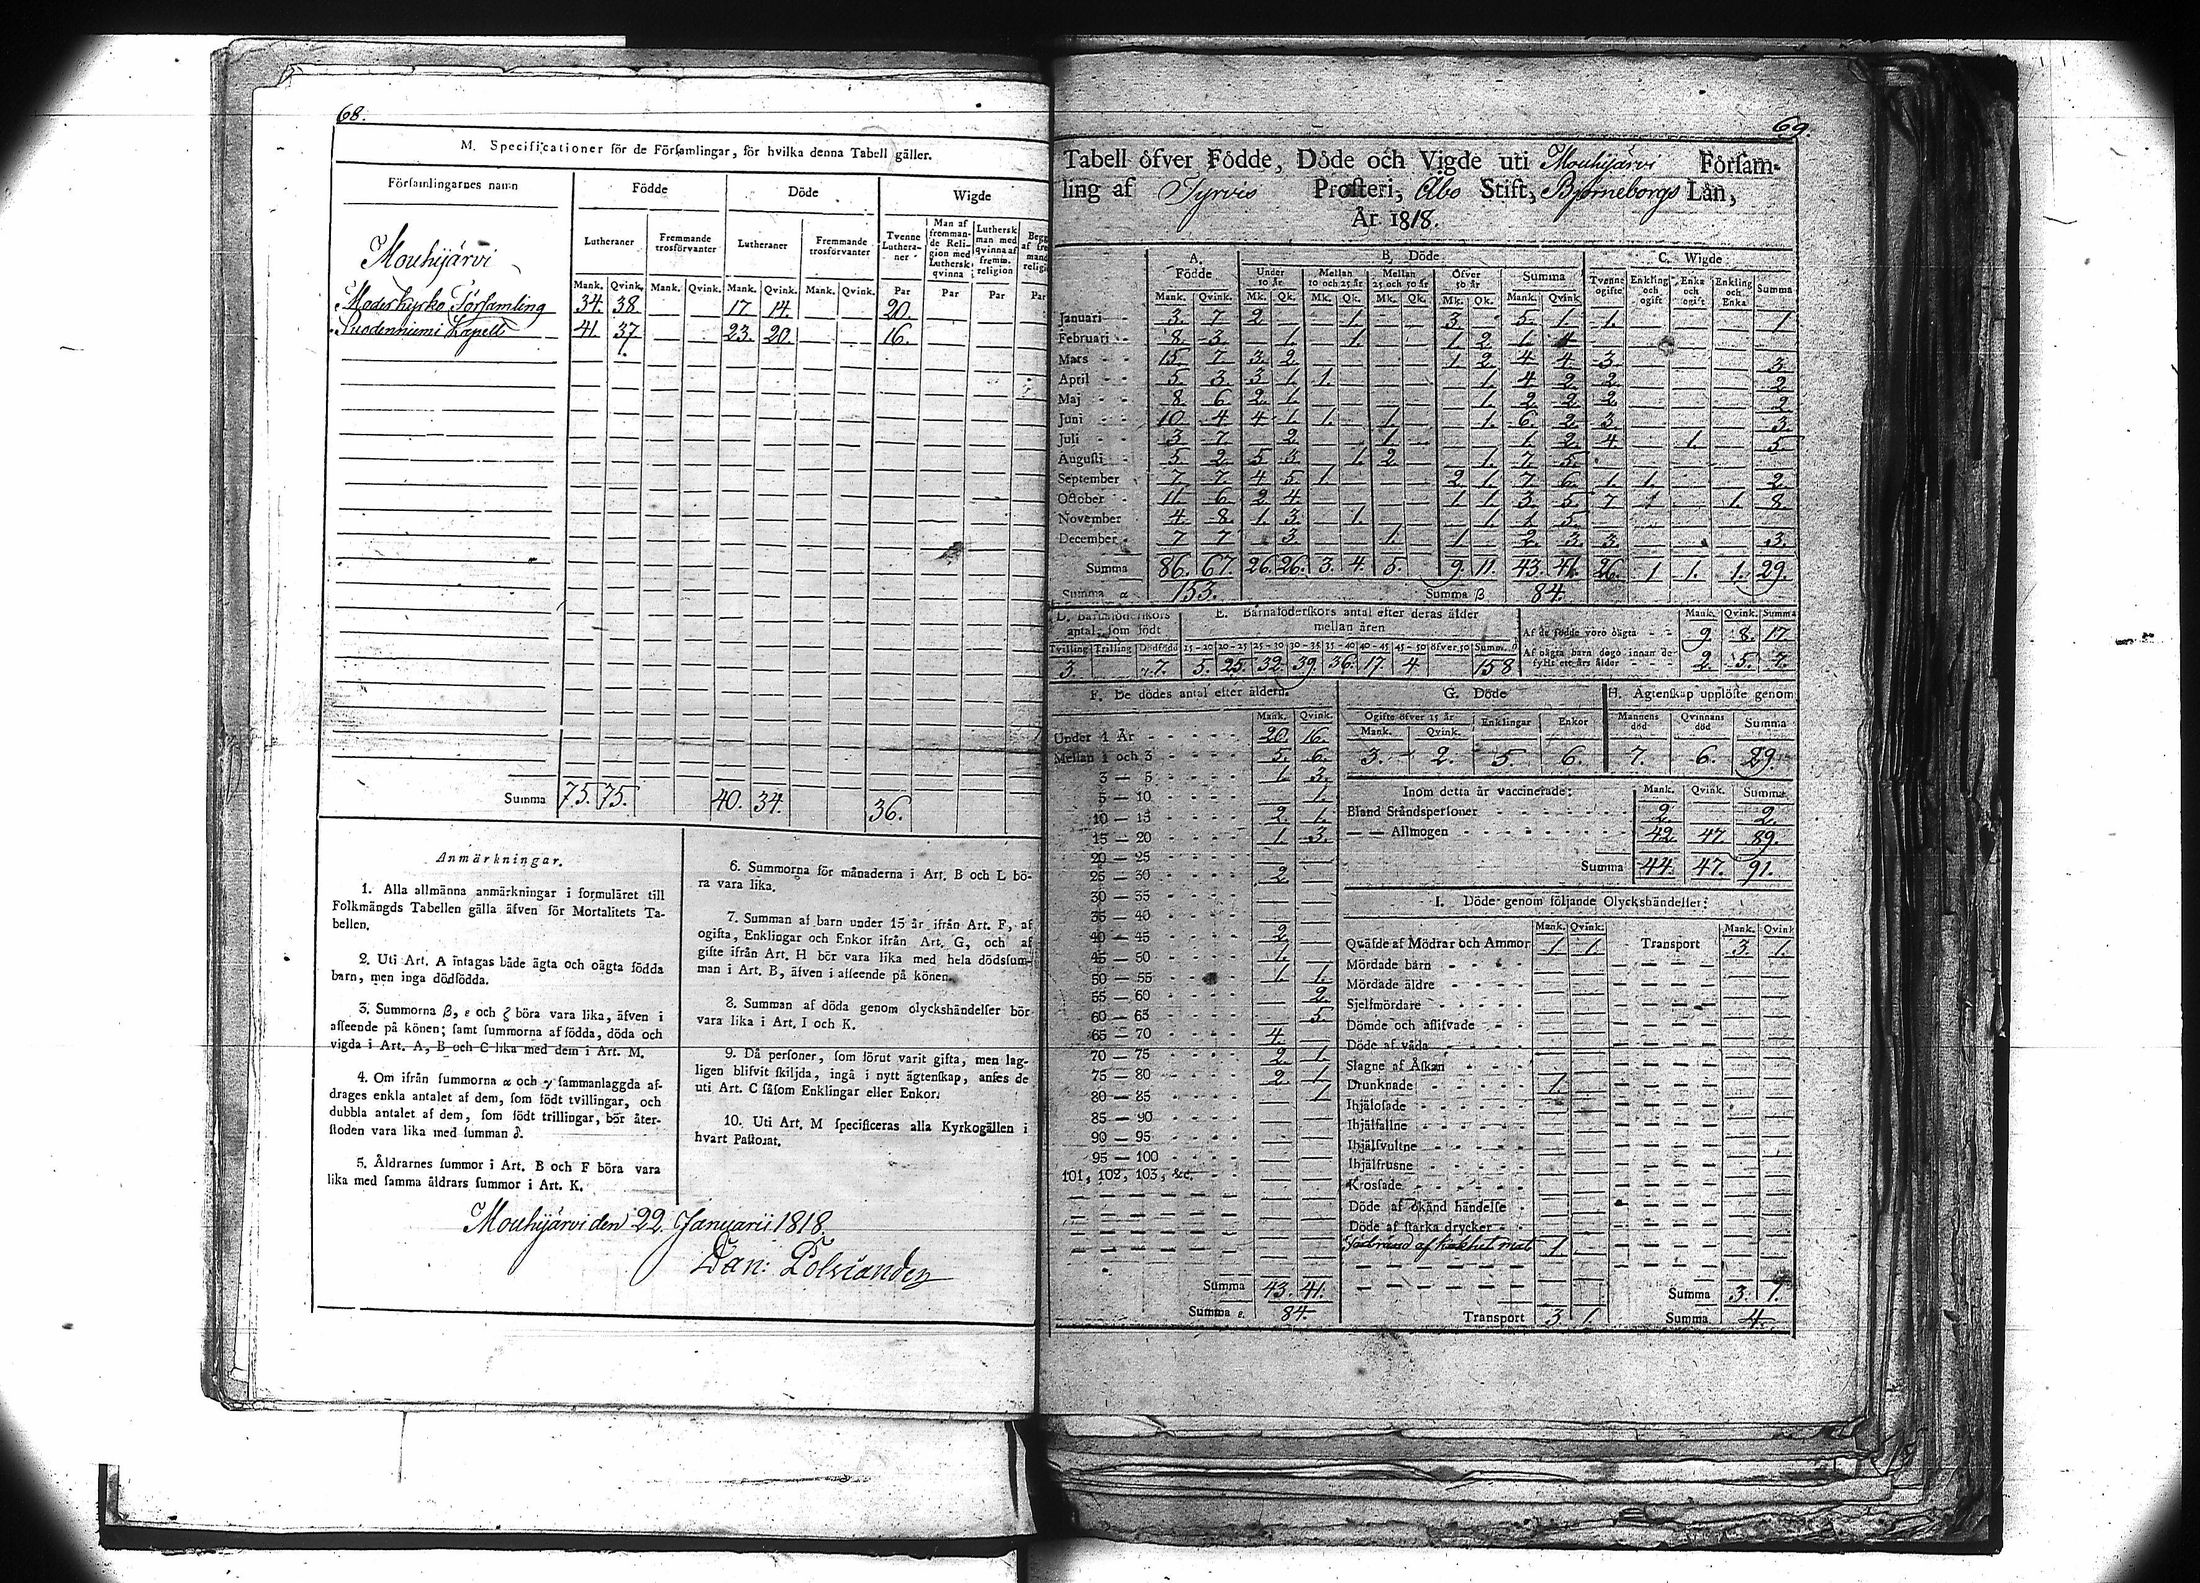 68.
M. Specificationer för de Församlingar, för hvilka denna Tabell gäller.
Församlingarnes namn | Födde | Döde | Wigde
Lutheraner | Fremmande trosförvanter | Lutheraner | Fremmande trosförvanter | Tvenne Lutheraner | Man af fremmande Religion med Luthersk qvinna | Luthersk man med qvinna af fremm. religion
Mank. Qvink. Mank. Qvink. Mank. Qvink. Mank. Qvink. Par Par Par Par
Mouhijärvi
Moderkyrko Församling 34. 38. — — 17. 14. — — 20. — — —
Suodenniemi Kapell 41. 37. — — 23. 20. — — 16. — — —
Summa 75. 75. 40. 34. 36.
Anmärkningar.
1. Alla allmänna anmärkningar i formuläret till
Folkmängds Tabellen gälla äfven för Mortalitets Ta-
bellen.
2. Uti Art. A intagas både ägta och oägta födda
barn, men inga dödfödda.
3. Summorna β, ε och ζ böra vara lika, äfven i
afseende på könen; samt summorna af födda, döda och
vigda i Art. A, B och C lika med dem i Art. M.
4. Om ifrån summorna α och γ sammanlaggda af-
drages enkla antalet af dem, som födt tvillingar, och
dubbla antalet af dem, som födt trillingar, bör åter-
stoden vara lika med summan δ.
5. Åldrarnes summor i Art. B och F böra vara
lika med samma åldrars summor i Art. K.
6. Summorna för månaderna i Art. B och L bö-
ra vara lika.
7. Summan af barn under 15 år ifrån Art. F, af
ogifta, Enklingar och Enkor ifrån Art. G, och af
gifte ifrån Art. H bör vara lika med hela dödssum-
man i Art. B, äfven i afseende på könen.
8. Summan af döda genom olyckshändelser bör
vara lika i Art. I och K.
9. Då personer, som förut varit gifta, men lag-
ligen blifvit skiljda, ingå i nytt ägtenskap, anses de
uti Art. C såsom Enklingar eller Enkor.
10. Uti Art. M specificeras alla Kyrkogällen i
hvart Pastorat.
Mouhijärvi den 22 Januarii 1818.
Dan:
69.
Tabell öfver Födde, Döde och Vigde uti Mouhijärvi Församling
af Tyrvis Prosteri, Åbo Stift, Björneborgs Län,
År 1818.
A. Födde | B. Döde | C. Wigde
Under 10 år | Mellan 10 och 25 år | Mellan 25 och 50 år | Öfver 50 år | Summa | Tvenne ogifte | Enkling och ogift | Enka och ogift | Enkling och Enka | Summa
Mank. Qvink. Mk. Qk. Mk. Qk. Mk. Qk. Mk. Qk. Mank. Qvink.
Januari 3. 7. 2. — — 1. — — 3. — 5. 1. 1. — — — 1
Februari 8. 3. — 1. — 1. — — 1. 2. 1. 4. — — — — —
Mars 15. 7. 3. 2. — — — — 1. 2. 4. 4. 3. — — — 3.
April 5. 3. 3. 1. 1. — — — — 1. 4. 2. 2. — — — 2.
Maj 8. 6. 2. 1. — — — — — 1. 2. 2. 2. — — — 2.
Juni 10. 4. 4. 1. 1. — 1. — — 1. 6. 2. 3. — — — 3.
Juli 3. 7. — 2. — — 1. — — — 1. 2. 4. — 1. — 5.
Augusti 5. 2. 5. 3. — 1. 2. — — 1. 7. 5. — — — — —
September 7. 7. 4. 5. 1. — — — 2. 1. 7. 6. 1. 1. — — 2.
October 11. 6. 2. 4. — — — — 1. 1. 3. 5. 7. 1 — 1. 8.
November 4. 8. 1. 3. — 1. — — — 1. 1. 5. — — — — —
December 7. 7. — 3. — — 1. — 1. — 2. 3. 3. — — — 3.
Summa 86. 67. 26. 26. 3. 4. 5. 9. 11. 43. 41. 26. 1 1. 1. 29.
Summa α 153. Summa β 84.
D. Barnaföderskors antal, som födt
Tvilling Trilling Dödfödd
3. 7.
E. Barnaföderskors antal efter deras ålder
mellan åren
15–20 20–25 25–30 30–35 35–40 40–45 45–50 öfver 50 Summa
5. 25. 32. 39. 36. 17. 4. 158
Mank. Qvink. Summa
Af de födde voro oägta 9. 8. 17
Af oägta barn dogo innan de fyllt ett års ålder 2. 5. 7.
F. De dödes antal efter åldern.
Mank. Qvink.
Under 1 År 20. 16.
Mellan 1 och 3 5. 6.
3 — 5 1. 3.
5 — 10 — 1.
10 — 15 2. 1.
15 — 20 1. 3.
20 — 25 — —
25 — 30 2. —
30 — 35 — —
35 — 40 — —
40 — 45 2. —
45 — 50 1. —
50 — 55 1. 1.
55 — 60 — 2.
60 — 65 — 5.
65 — 70 4. —
70 — 75 2. 1.
75 — 80 2. 1.
80 — 85 — 1
85 — 90 — —
90 — 95 — —
95 — 100 — —
101, 102, 103, &c.
Summa 43. 41.
Summa ε. 84.
G. Döde
Ogifte öfver 15 år | Enklingar | Enkor
Mank. Qvink.
3. 2. 5. 6.
H. Ägtenskap upplöste genom
Mannens död | Qvinnans död | Summa
7. 6. 29.
Inom detta år vaccinerade: Mank. Qvink. Summa
Bland Ståndspersoner 2. — 2.
— — Allmogen 42. 47 89.
Summa 44. 47. 91.
I. Döde genom följande Olyckshändelser:
Mank. Qvink. Mank. Qvink
Quäfde af Mödrar och Ammor 1. 1. Transport 3. 1.
Mördade barn
Mördade äldre
Sjelfmördare
Dömde och aflifvade
Döde af våda
Slagne af Åskan
Drunknade 1.
Ihjälosade
Ihjälfallne
Ihjälsvultne
Ihjälfrusne
Krossade
Döde af okänd händelse
Döde af starka drycker
Förbränd af kokhet mat 1.
Summa 3. 1.
Transport 3. 1. Summa 4.